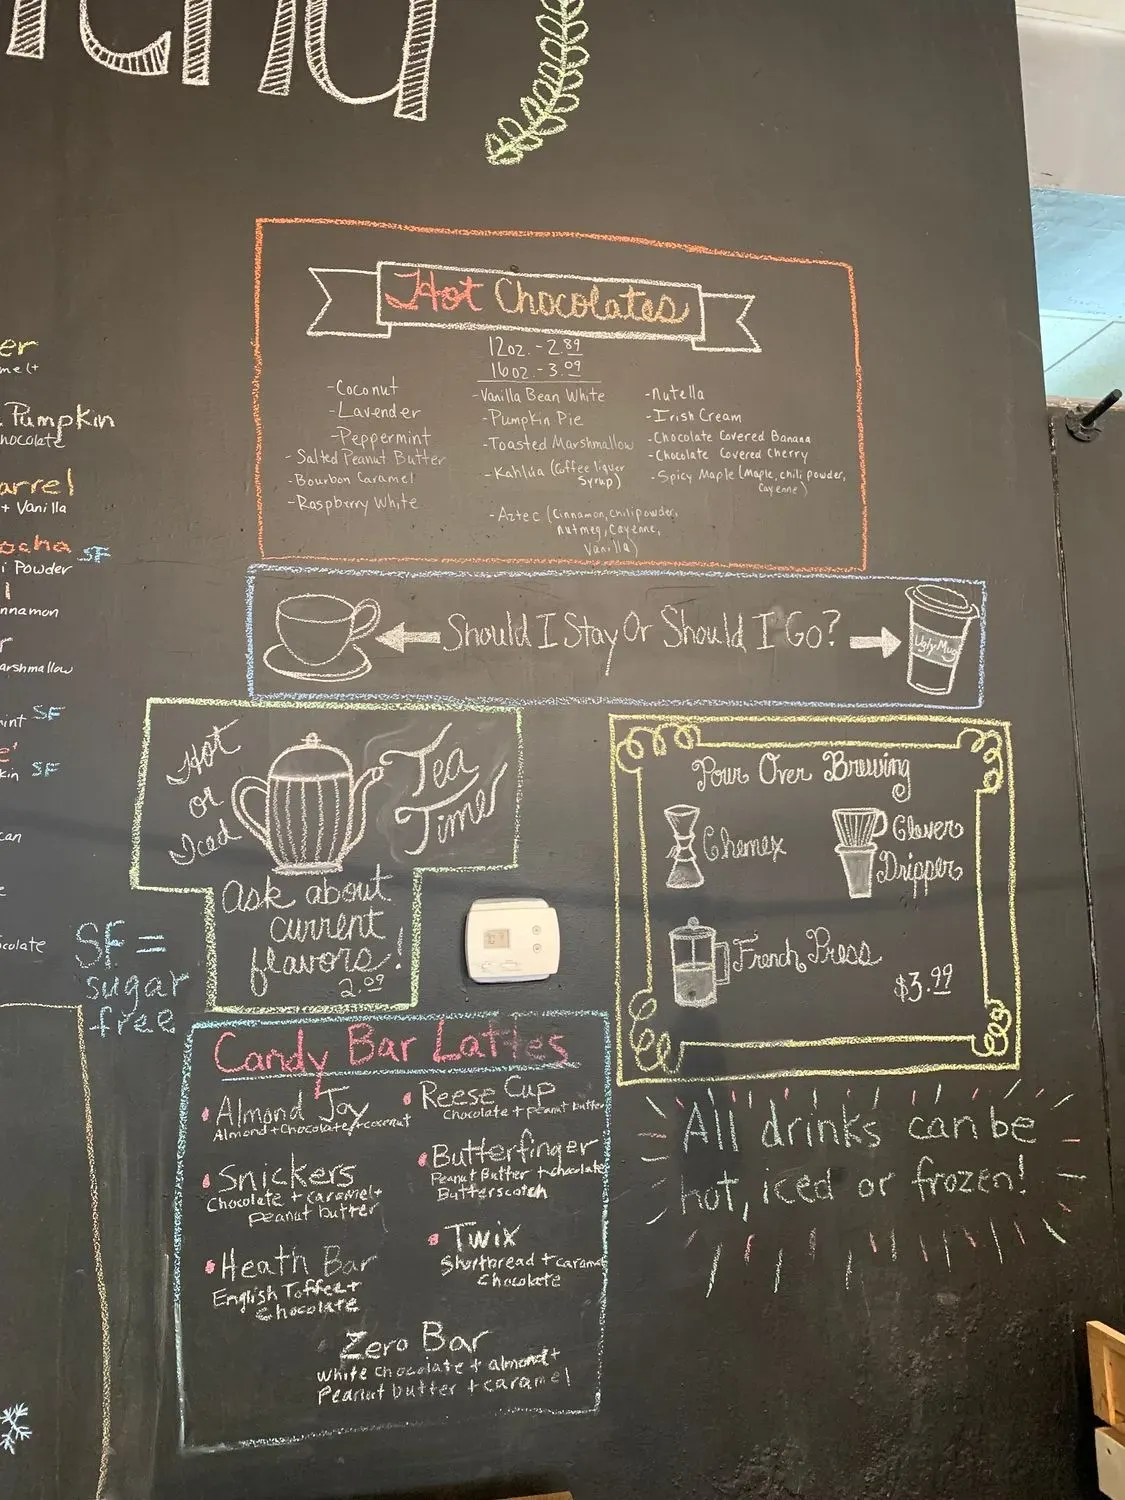 Menu
er
melt
Pumpkin
hocolate
arrel
+ Vanilla
ocha SF
i Powder
l
nnamon
r
arshmallow
int SF
e'
kin SF
can
e
ocolate
SF =
sugar
free
Hot Chocolates
12oz. - 2.89
16oz. - 3.09
- Coconut
- Lavender
- Peppermint
- Salted Peanut Butter
- Bourbon Caramel
- Raspberry White
- Vanilla Bean White
- Pumpkin Pie
- Toasted Marshmallow
- Kahlúa (Coffee liquer
Syrup)
- Aztec (Cinnamon, chili powder,
nutmeg, Cayenne,
Vanilla)
- Nutella
- Irish Cream
- Chocolate Covered Banana
- Chocolate Covered Cherry
- Spicy Maple (Maple, chili powder,
Cayenne)
Should I Stay Or Should I Go?
Ugly Mug
Hot
or
Iced
Tea
Time
Ask about
current
flavors!
2.09
Pour Over Brewing
Chemex
Clever
Dripper
French Press
$3.99
Candy Bar Lattes
• Almond Joy
Almond + Chocolate + coconut
• Snickers
Chocolate + caramel +
peanut butter
• Heath Bar
English Toffee +
Chocolate
• Reese Cup
Chocolate + peanut butter
• Butterfinger
Peanut Butter + chocolate
Butterscotch
• Twix
Shortbread + caramel
Chocolate
Zero Bar
White chocolate + almond +
Peanut butter + caramel
All drinks can be
hot, iced or frozen!